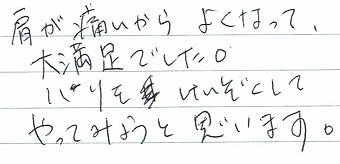 肩が痛いから よくなって、
大満足でした。
ハリを けいぞくして
やってみようと思います。